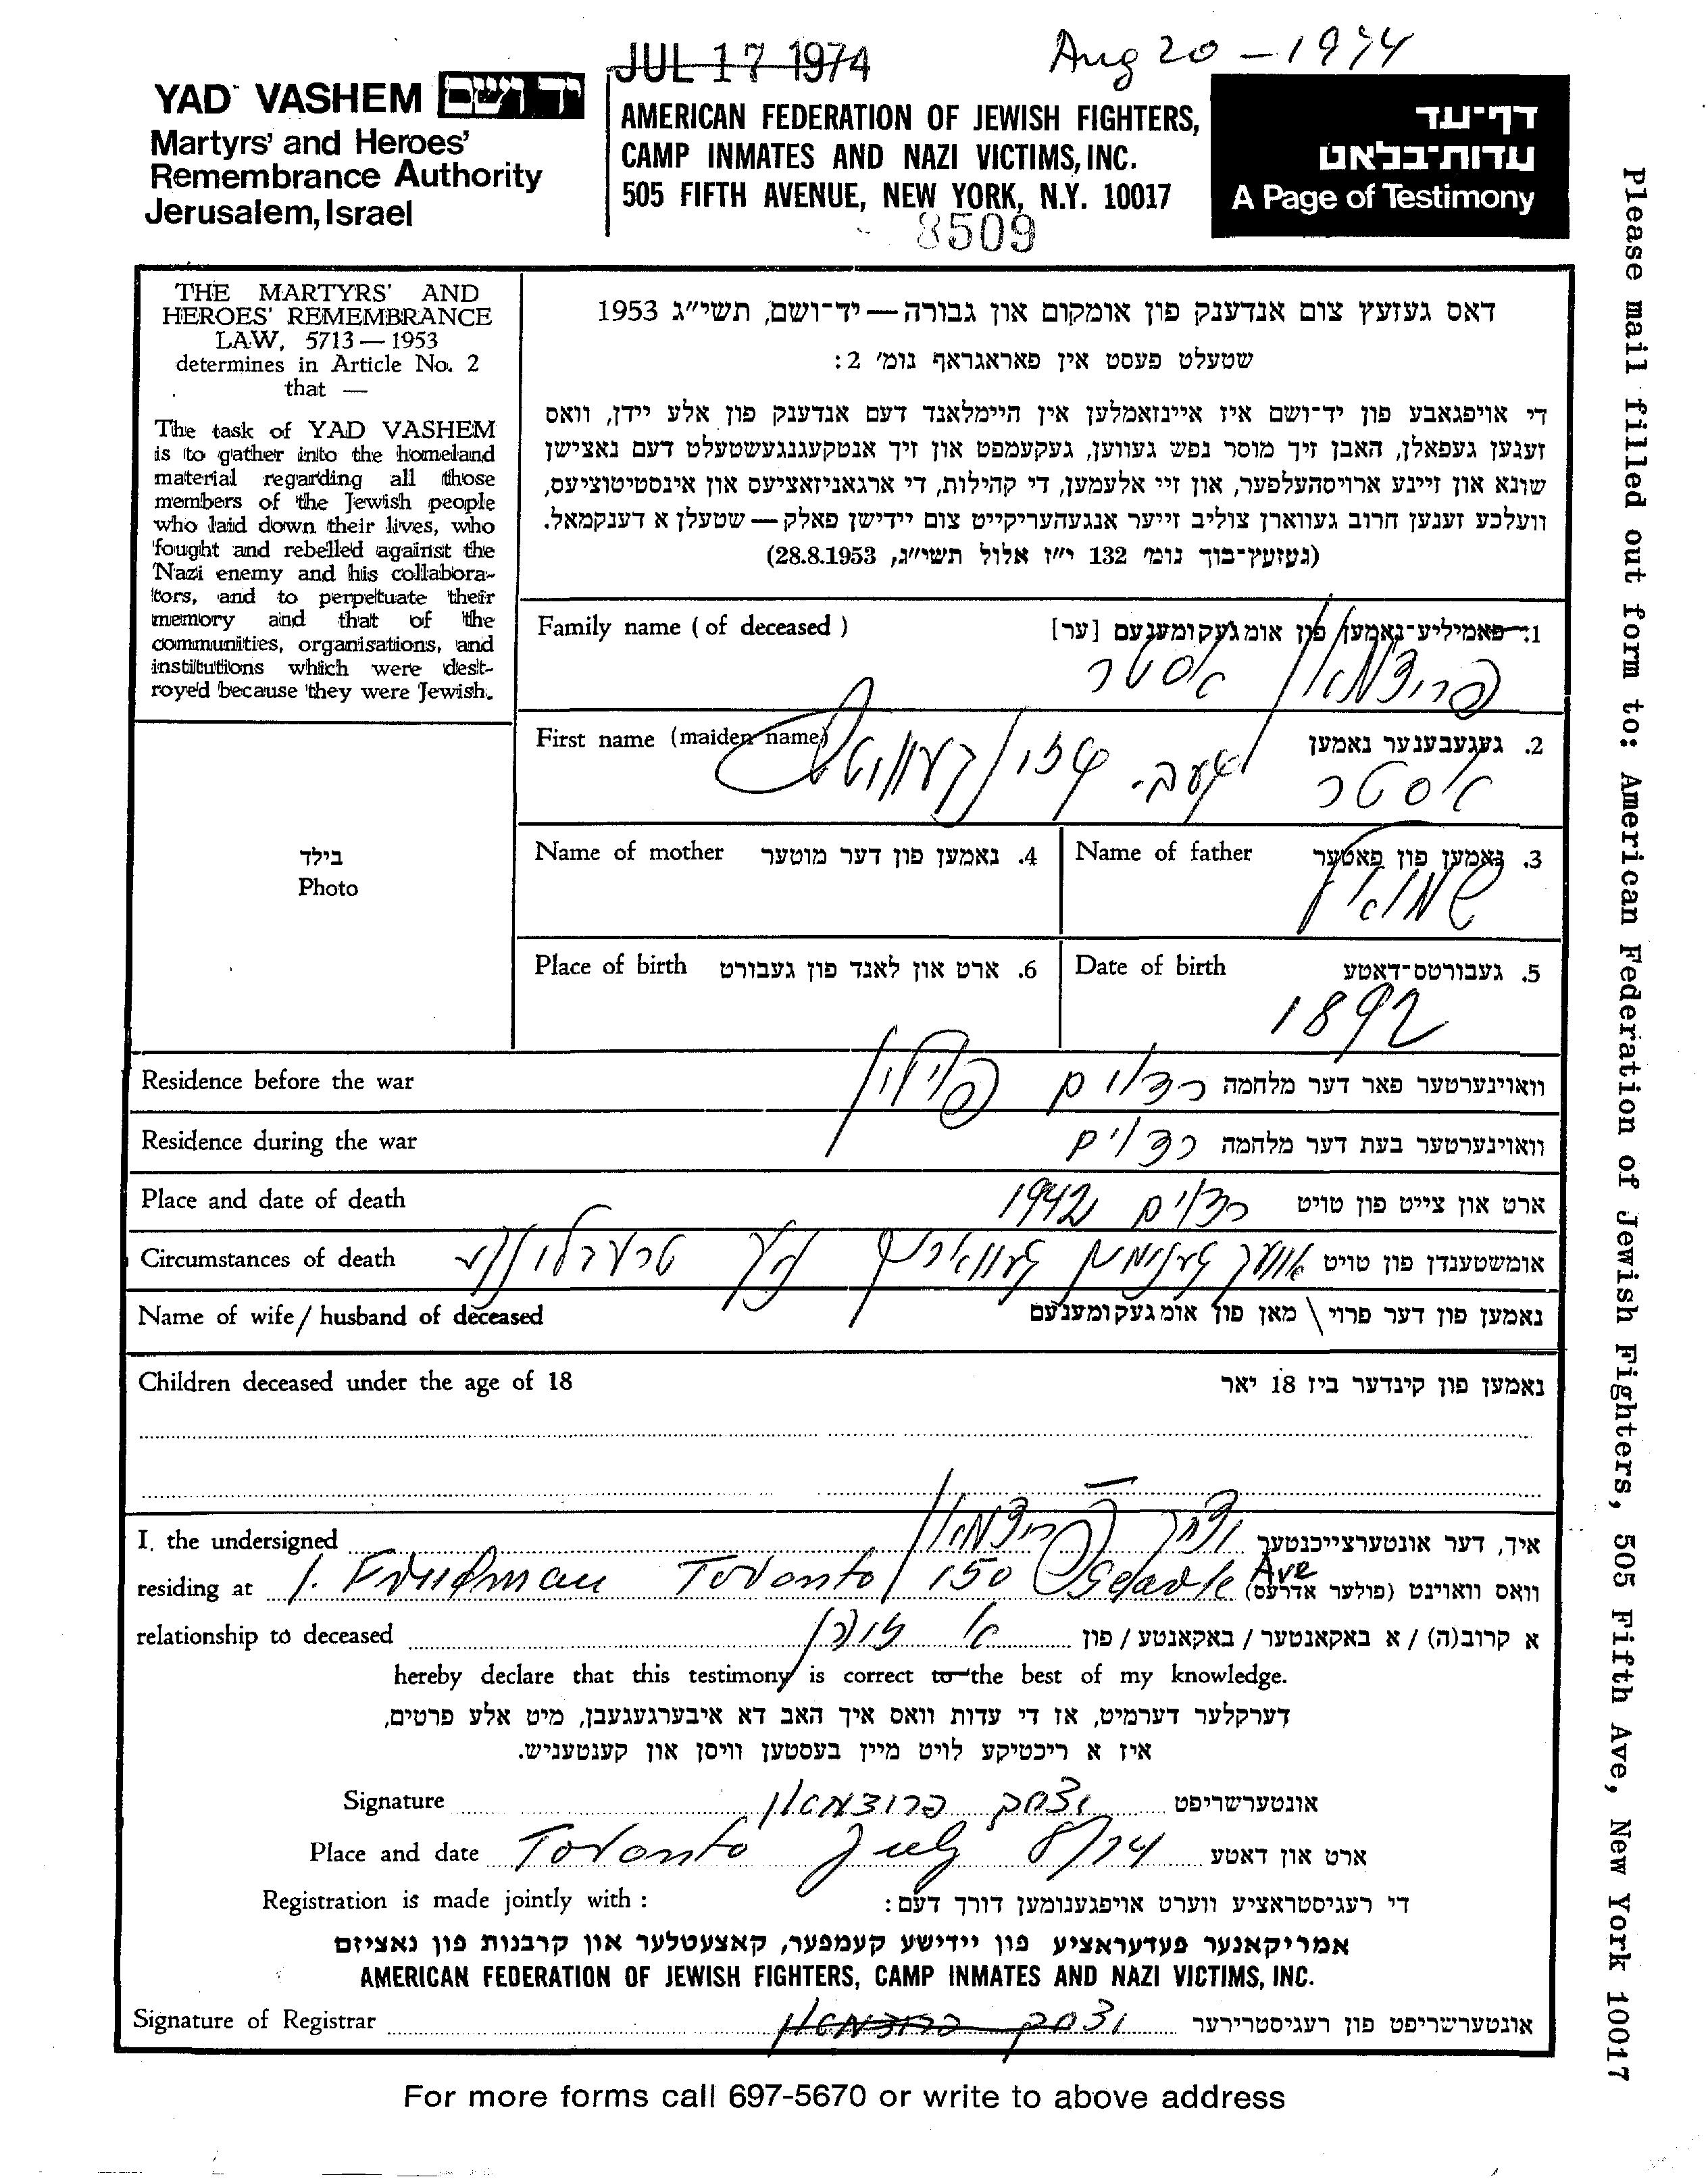 JUL 17 1974
Aug 20 - 1974
YAD VASHEM יד ושם
Martyrs' and Heroes'
Remembrance Authority
Jerusalem, Israel
AMERICAN FEDERATION OF JEWISH FIGHTERS,
CAMP INMATES AND NAZI VICTIMS, INC.
505 FIFTH AVENUE, NEW YORK, N.Y. 10017
8509
דף־עד
עדות־בלאט
A Page of Testimony
THE MARTYRS' AND
HEROES' REMEMBRANCE
LAW, 5713 — 1953
determines in Article No. 2
that —
The task of YAD VASHEM
is to gather into the homeland
material regarding all those
members of the Jewish people
who laid down their lives, who
fought and rebelled against the
Nazi enemy and his collabora-
tors, and to perpetuate their
memory and that of the
communities, organisations, and
institutions which were dest-
royed because they were Jewish.
דאס געזעץ צום אנדענק פון אומקום און גבורה — יד־ושם, תשי״ג 1953
שטעלט פעסט אין פאראגראף נומ׳ 2:
די אויפגאבע פון יד־ושם איז איינזאמלען אין היימלאנד דעם אנדענק פון אלע יידן, וואס
זענען געפאלן, האבן זיך מוסר נפש געווען, געקעמפט און זיך אנטקעגנגעשטעלט דעם נאצישן
שונא און זיינע ארויסהעלפער, און זיי אלעמען, די קהילות, די ארגאניזאציעס און אינסטיטוציעס,
וועלכע זענען חרוב געווארן צוליב זייער אנגעהעריקייט צום יידישן פאלק — שטעלן א דענקמאל.
(געזעץ־בוך נומ׳ 132 י״ז אלול תשי״ג, 28.8.1953)
Family name ( of deceased )
1. פאמיליע־נאמען פון אומגעקומענעם [ער]
פרידמאן אסטר
First name (maiden name)
2. געגעבענער נאמען
אסטר
בילד
Photo
Name of mother 4. נאמען פון דער מוטער
Name of father 3. נאמען פון פאטער
Place of birth 6. ארט און לאנד פון געבורט
Date of birth 5. געבורטס־דאטע
1892
Residence before the war וואוינערטער פאר דער מלחמה רדzים פוילן
Residence during the war וואוינערטער בעת דער מלחמה
Place and date of death ארט און צייט פון טויט 1942
Circumstances of death אומשטענדן פון טויט אוועק גענומען געווארן קיין טרעבלינקע
Name of wife / husband of deceased נאמען פון דער פרוי \ מאן פון אומגעקומענעם
Children deceased under the age of 18 נאמען פון קינדער ביז 18 יאר
I, the undersigned איך, דער אונטערצייכנטער יצחק פרידמאן
residing at I. Friedman Toronto 150 Ave וואס וואוינט (פולער אדרעס)
relationship to deceased א קרוב(ה) / א באקאנטער / באקאנטע / פון א זוהן
hereby declare that this testimony is correct to the best of my knowledge.
דערקלער דערמיט, אז די עדות וואס איך האב דא איבערגעגעבן, מיט אלע פרטים,
איז א ריכטיקע לויט מיין בעסטען וויסן און קענטעניש.
Signature יצחק פרידמאן אונטערשריפט
Place and date Toronto July 8/74 ארט און דאטע
Registration is made jointly with : די רעגיסטראציע ווערט אויפגענומען דורך דעם:
אמריקאנער פעדעראציע פון יידישע קעמפער, קאצעטלער און קרבנות פון נאציזם
AMERICAN FEDERATION OF JEWISH FIGHTERS, CAMP INMATES AND NAZI VICTIMS, INC.
Signature of Registrar יצחק פרידמאן אונטערשריפט פון רעגיסטרירער
For more forms call 697-5670 or write to above address
Please mail filled out form to: American Federation of Jewish Fighters, 505 Fifth Ave, New York 10017